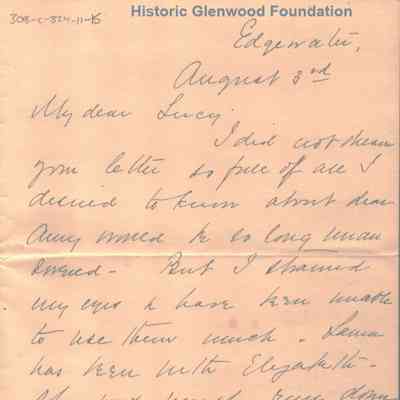 308-C-824-11-15
Historic Glenwood Foundation
Edgewater,
August 3rd
My dear Lucy
I did not mean
your letter so full of all I
desired to know about dear
Amy would be so long unan
swered - But I strained
my eyes & have been unable
to use them much. Laura
has been with Elizabeth -
down